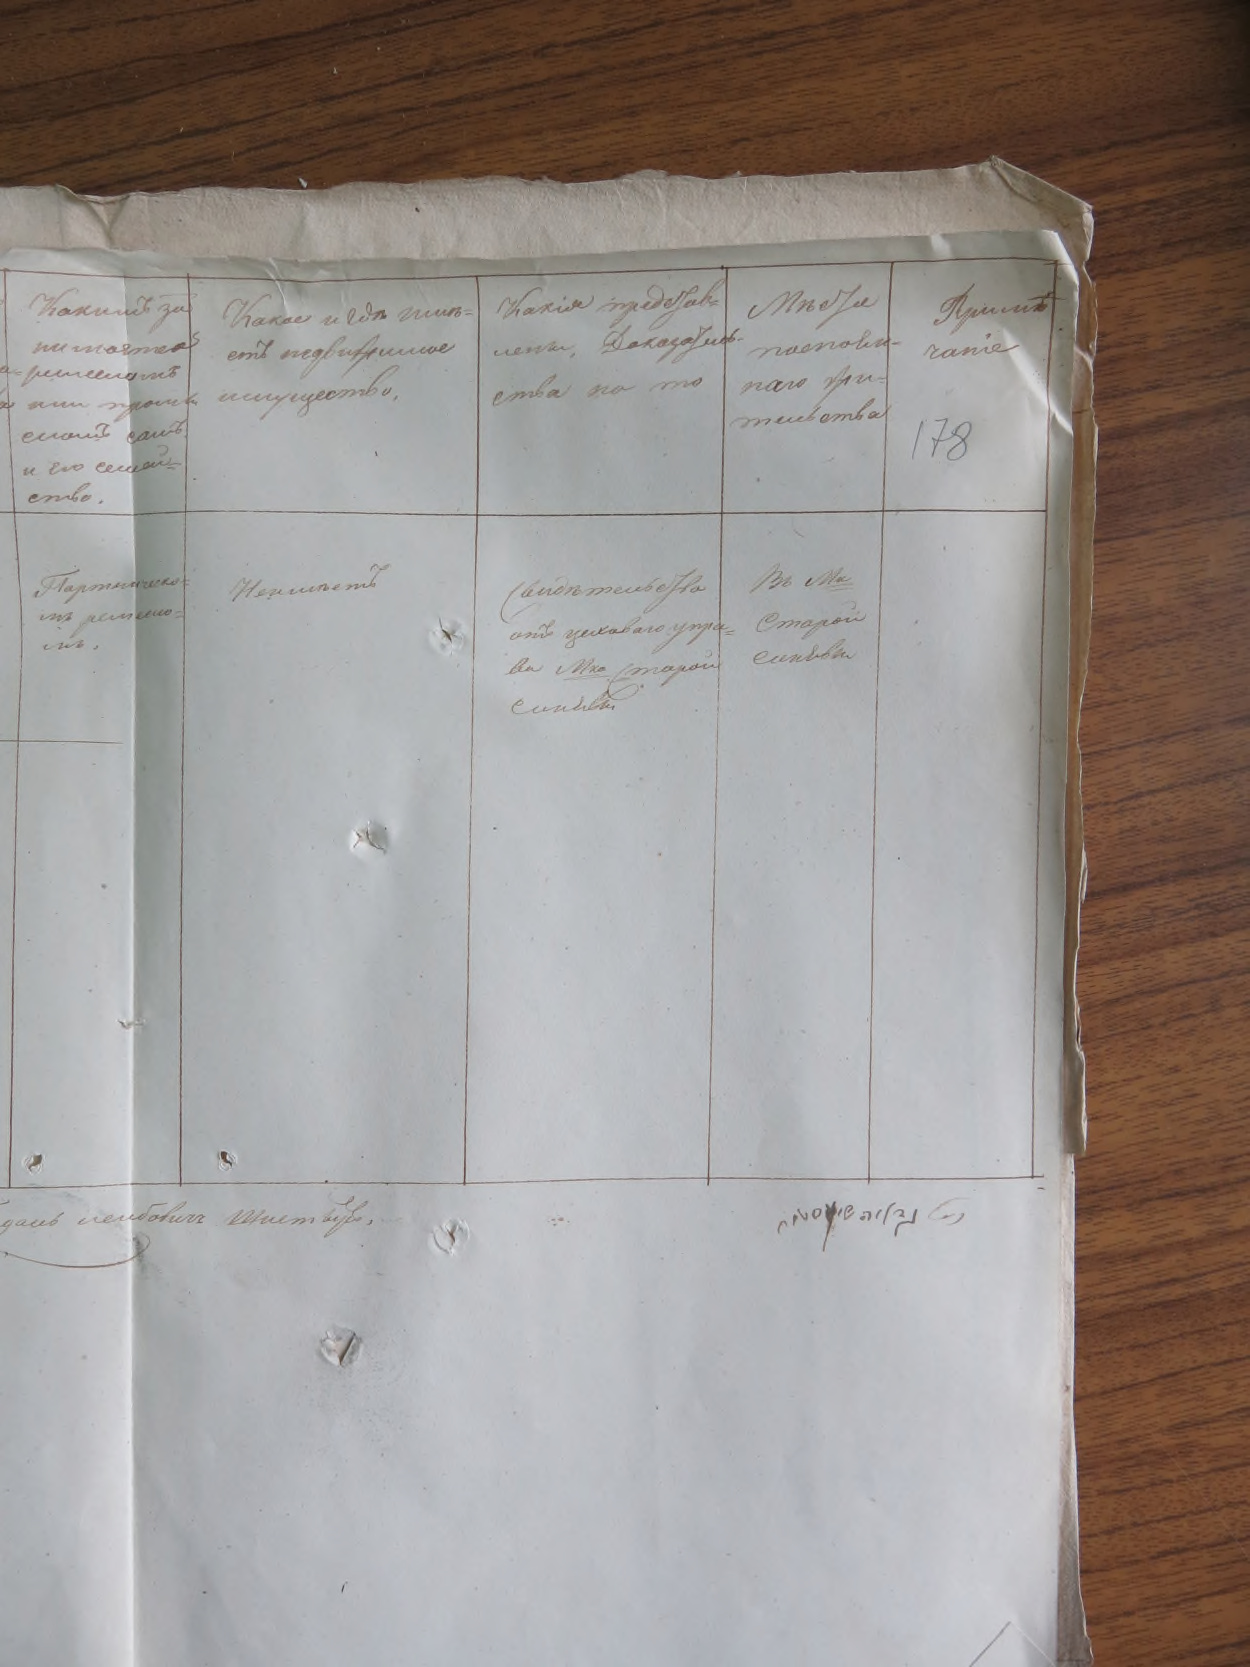 Какимъ за
нимается
ремесломъ
или промы
сломъ самъ
и его семей-
ство.
Какое и гдѣ имѣ-
етъ недвижимое
имущество.
Какія представ-
лены Доказатель-
ства на то
Мѣста
постоян-
наго жи-
тельства
Примѣ
чаніе
178
Портническо-
мъ ремесло-
мъ.
Неимѣетъ
Свидѣтельство
отъ цеховаго упра-
ва Мка Старой
Синявы
Въ Мкѣ
Старой
Синявки